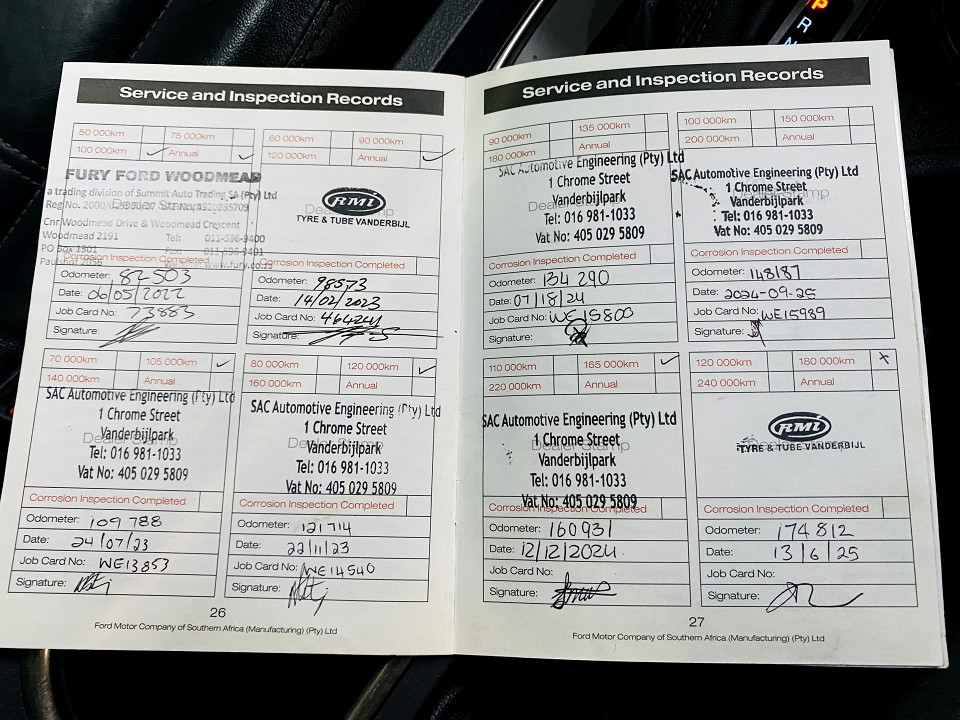 P
R
N
Service and Inspection Records
50 000km 75 000km
100 000km ✓ Annual ✓
FURY FORD WOODMEAD
a trading division of Summit Auto Trading SA (Pty) Ltd
Reg No.
Cnr Woodmead Drive & Woodmead Crescent
Woodmead 2191 Tel: 011-596-9400
PO Box 1801 Fax: 011-596-9491
www.fury.co.za
Corrosion Inspection Completed
Odometer: 82503
Date: 06/05/2022
Job Card No: 73883
Signature:
60 000km 90 000km
120 000km Annual ✓
Dealer Stamp
RMI
TYRE & TUBE VANDERBIJL
Corrosion Inspection Completed
Odometer: 98573
Date: 14/02/2023
Job Card No:
Signature:
70 000km 105 000km ✓
140 000km Annual
SAC Automotive Engineering (Pty) Ltd
1 Chrome Street
Vanderbijlpark
Dealer Stamp
Tel: 016 981-1033
Vat No: 405 029 5809
Corrosion Inspection Completed
Odometer: 109 788
Date: 24/07/23
Job Card No: WE13853
Signature:
80 000km 120 000km ✓
160 000km Annual
SAC Automotive Engineering (Pty) Ltd
1 Chrome Street
Vanderbijlpark
Dealer Stamp
Tel: 016 981-1033
Vat No: 405 029 5809
Corrosion Inspection Completed
Odometer: 121 714
Date: 22/11/23
Job Card No: WE14540
Signature:
26
Ford Motor Company of Southern Africa (Manufacturing) (Pty) Ltd
Service and Inspection Records
90 000km 135 000km
180 000km Annual
SAC Automotive Engineering (Pty) Ltd
1 Chrome Street
Vanderbijlpark
Dealer Stamp
Tel: 016 981-1033
Vat No: 405 029 5809
Corrosion Inspection Completed
Odometer: 134 290
Date: 07/18/24
Job Card No: WE15800
Signature:
100 000km 150 000km
200 000km Annual
SAC Automotive Engineering (Pty) Ltd
1 Chrome Street
Vanderbijlpark
Dealer Stamp
Tel: 016 981-1033
Vat No: 405 029 5809
Corrosion Inspection Completed
Odometer: 148187
Date: 2024-09-25
Job Card No: WE15989
Signature:
110 000km 165 000km ✓
220 000km Annual
SAC Automotive Engineering (Pty) Ltd
1 Chrome Street
Dealer Stamp
Vanderbijlpark
Tel: 016 981-1033
Vat No: 405 029 5809
Corrosion Inspection Completed
Odometer: 160931
Date: 12/12/2024.
Job Card No:
Signature:
120 000km 180 000km x
240 000km Annual
RMI
Dealer Stamp
TYRE & TUBE VANDERBIJL
Corrosion Inspection Completed
Odometer: 174 812
Date: 13/6/25
Job Card No:
Signature:
27
Ford Motor Company of Southern Africa (Manufacturing) (Pty) Ltd